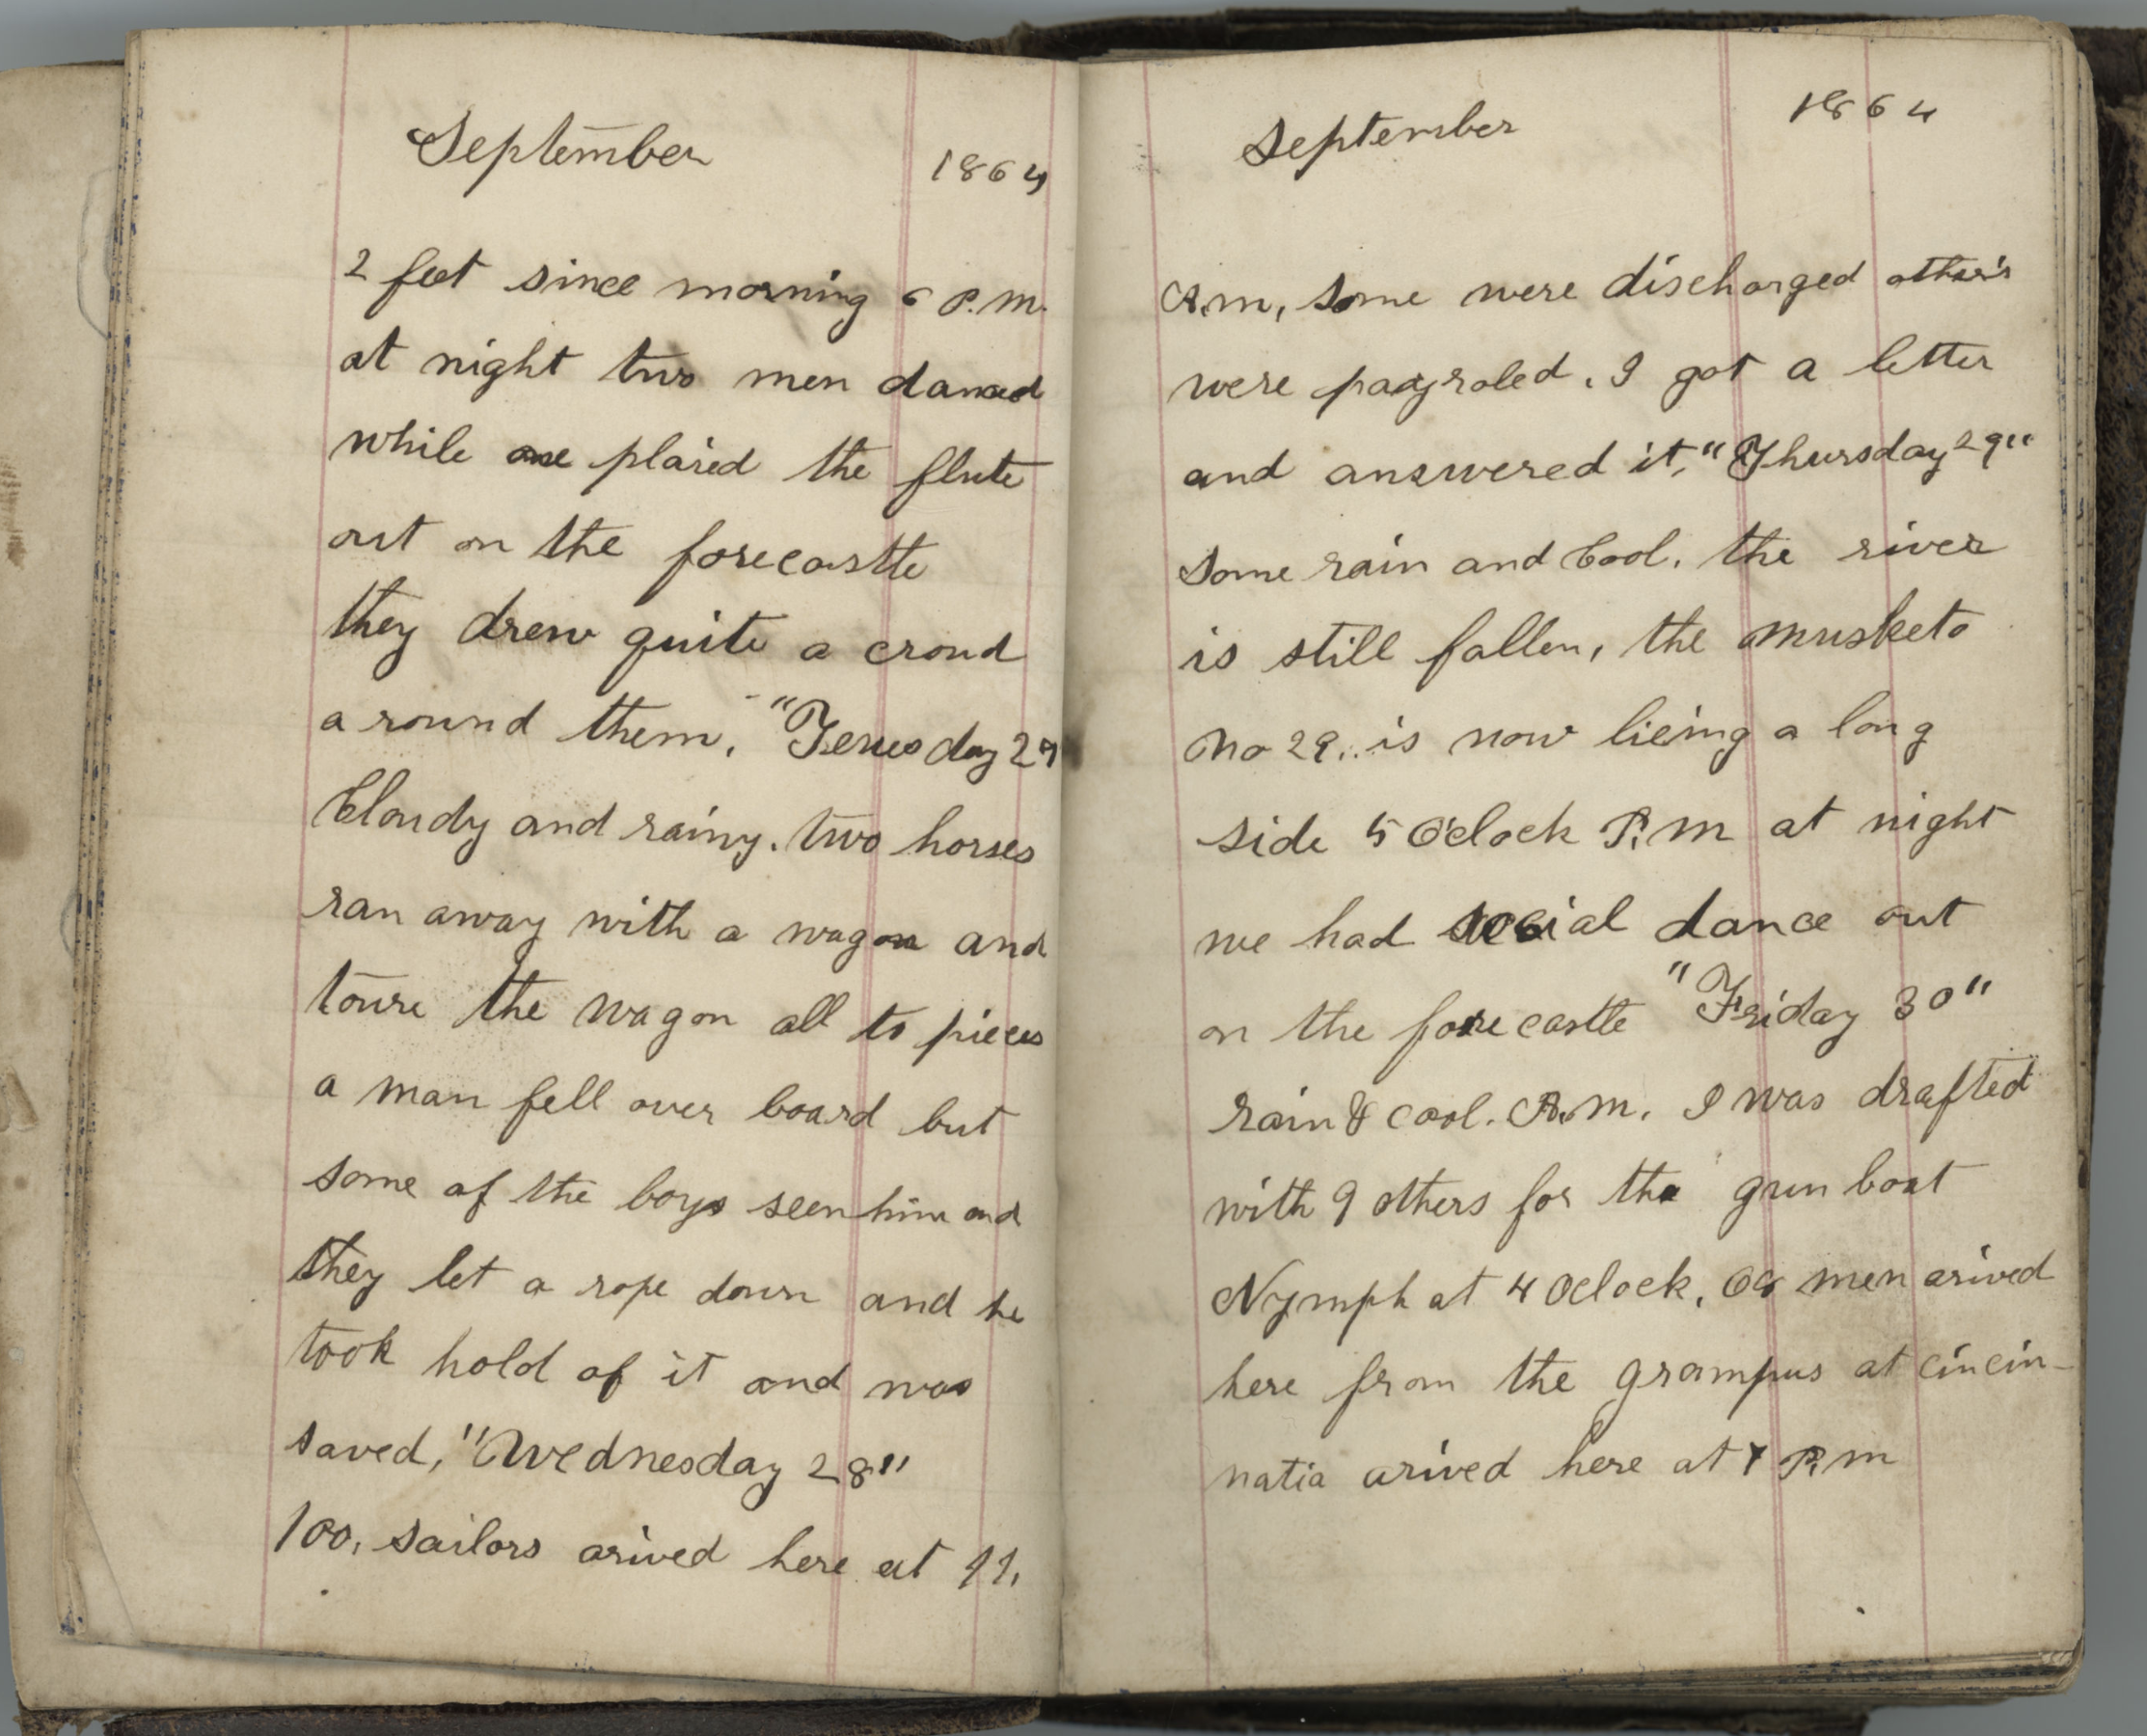 September 1864
2 feet since morning 6 P.M.
at night two men danced
while one plaied the flute
out on the forecastle
they drew quite a croud
a round them, "Teuesday 27
Cloudy and rainy. two horses
ran away with a wagon and
toure the wagon all to pieces
a man fell over board but
some of the boys seen him and
they let a rope down and he
took hold of it and was
saved, "Wednesday 28"
100, sailors arived here at 11,
September 1864
A.m, some were discharged others
were payroled. I got a letter
and answered it, "Thursday 29"
some rain and Cool. the river
is still fallen, the musketo
No 29. is now lieing a long
side 5 O'clock P.M at night
we had social dance out
on the forecastle "Friday 30"
rain & cool. A.m. I was drafted
with 9 others for the gun boat
Nymph at 4 Oclock, men arived
here from the grampus at cincin-
natia arived here at P.m